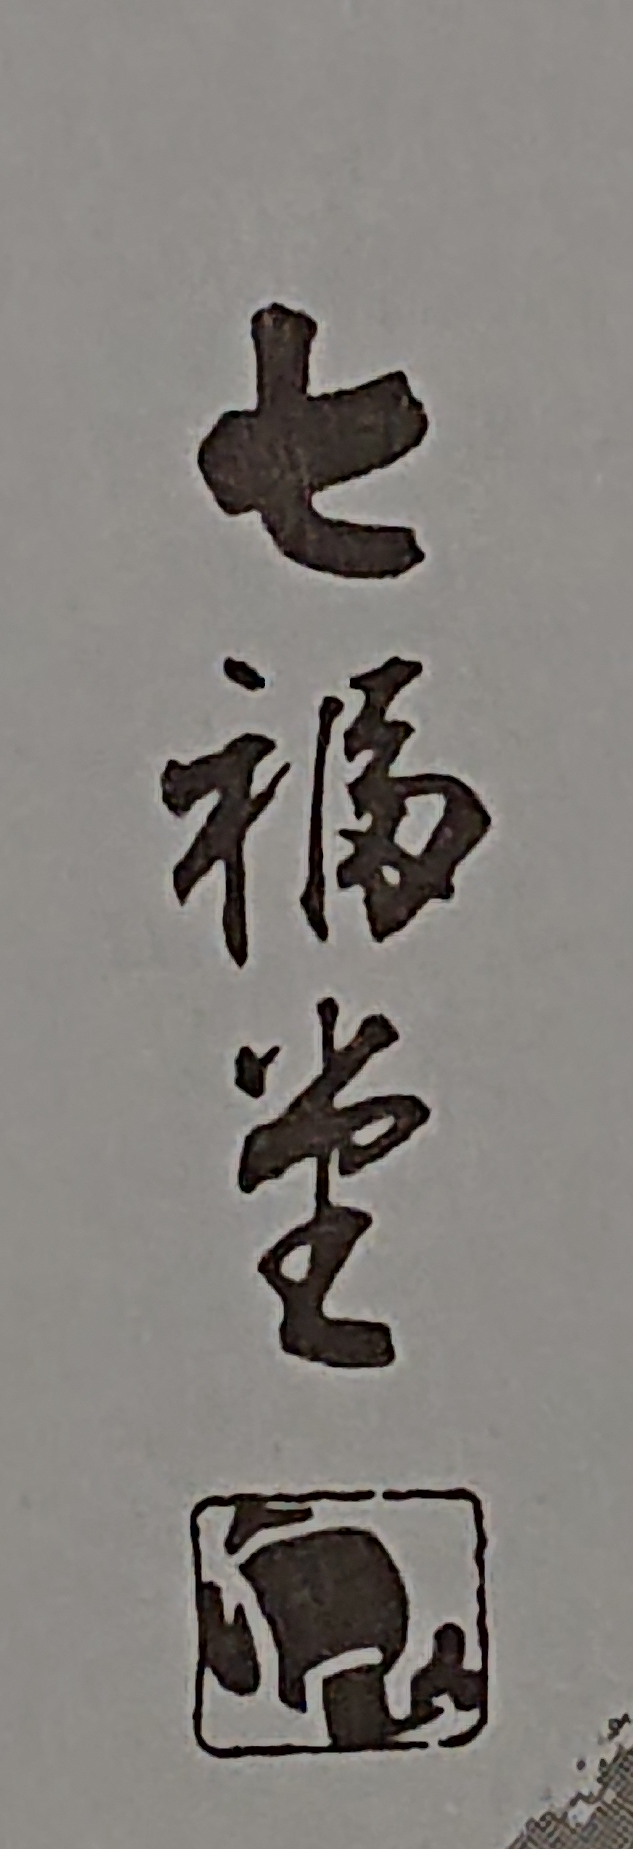 七福堂